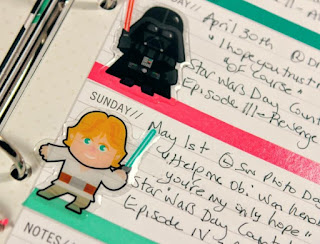 DAY//
April 30th @ D
"I hope you trust
"Of course"
Star Wars Day Count
Episode III - Revenge
SUNDAY//
May 1st @ Sun Photo Da
"Help me Obi Wan
you're my only hope"
Star Wars Day Count
Episode IV
NOTES/